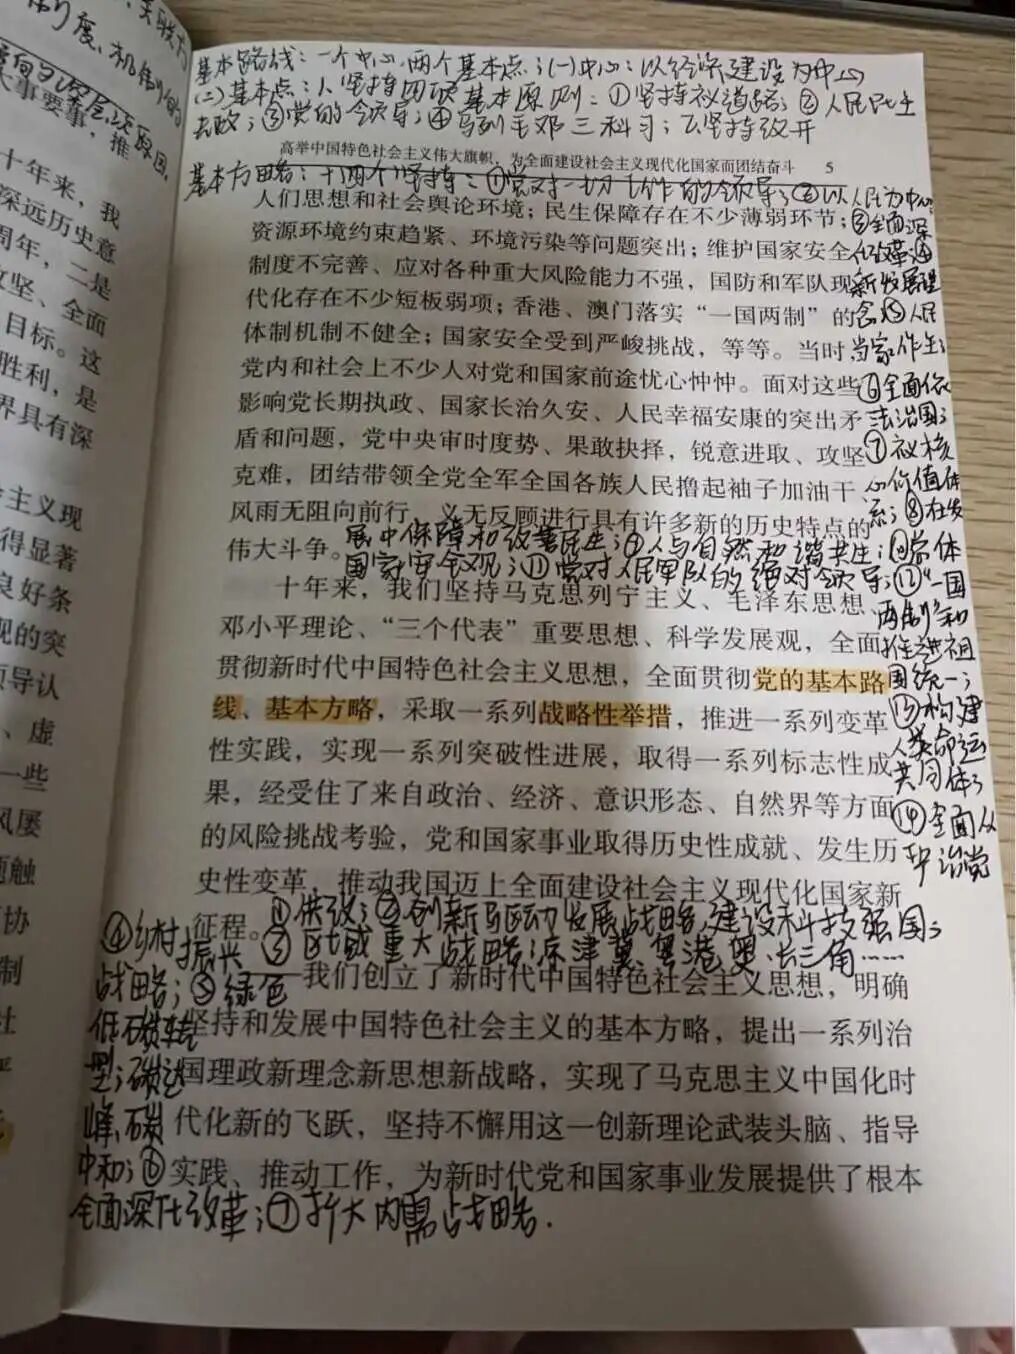 关联十
制度、机制的
大事要事，推
十年来，我
深远历史意
周年，二是
攻坚、全面
目标。这
胜利，是
界具有深
会主义现
得显著
良好条
观的突
领导认
、虚
一些
风屡
触
协
制
社
基本路线：一个中心，两个基本点；(一)中心：以经济建设为中心
(二)基本点：1、坚持四项基本原则：①坚持社道路；②人民民主
专政；③党的领导；④马列毛邓三科习；2、坚持改开
高举中国特色社会主义伟大旗帜，为全面建设社会主义现代化国家而团结奋斗 5
基本方略：十四个坚持：①党对一切工作的领导；②以人民为中心
人们思想和社会舆论环境；民生保障存在不少薄弱环节；③全面深
资源环境约束趋紧、环境污染等问题突出；维护国家安全化改革④
制度不完善、应对各种重大风险能力不强，国防和军队现新发展理
代化存在不少短板弱项；香港、澳门落实“一国两制”的念⑤人民
体制机制不健全；国家安全受到严峻挑战，等等。当时当家作主；
党内和社会上不少人对党和国家前途忧心忡忡。面对这些⑥全面依
影响党长期执政、国家长治久安、人民幸福安康的突出矛法治国；
盾和问题，党中央审时度势、果敢抉择，锐意进取、攻坚⑦社核
克难，团结带领全党全军全国各族人民撸起袖子加油干、心价值体
风雨无阻向前行，义无反顾进行具有许多新的历史特点的系；⑧在发
伟大斗争。展中保障和改善民生；⑨人与自然和谐共生；⑩总体
国家安全观；⑪党对人民军队的绝对领导；⑫“一国
十年来，我们坚持马克思列宁主义、毛泽东思想、两制”和
邓小平理论、“三个代表”重要思想、科学发展观，全面推进祖
贯彻新时代中国特色社会主义思想，全面贯彻党的基本路国统一；
线、基本方略，采取一系列战略性举措，推进一系列变革⑬构建
性实践，实现一系列突破性进展，取得一系列标志性成人类命运
果，经受住了来自政治、经济、意识形态、自然界等方面共同体；
的风险挑战考验，党和国家事业取得历史性成就、发生历⑭全面从
史性变革，推动我国迈上全面建设社会主义现代化国家新严治党
征程。①供改；②创新驱动发展战略，建设科技强国；
④乡村振兴③区域重大战略：京津冀、粤港澳、长三角……
战略；⑤绿色我们创立了新时代中国特色社会主义思想，明确
低碳转坚持和发展中国特色社会主义的基本方略，提出一系列治
型；碳达国理政新理念新思想新战略，实现了马克思主义中国化时
峰、碳代化新的飞跃，坚持不懈用这一创新理论武装头脑、指导
中和；⑥实践、推动工作，为新时代党和国家事业发展提供了根本
全面深化改革；⑦扩大内需战略.